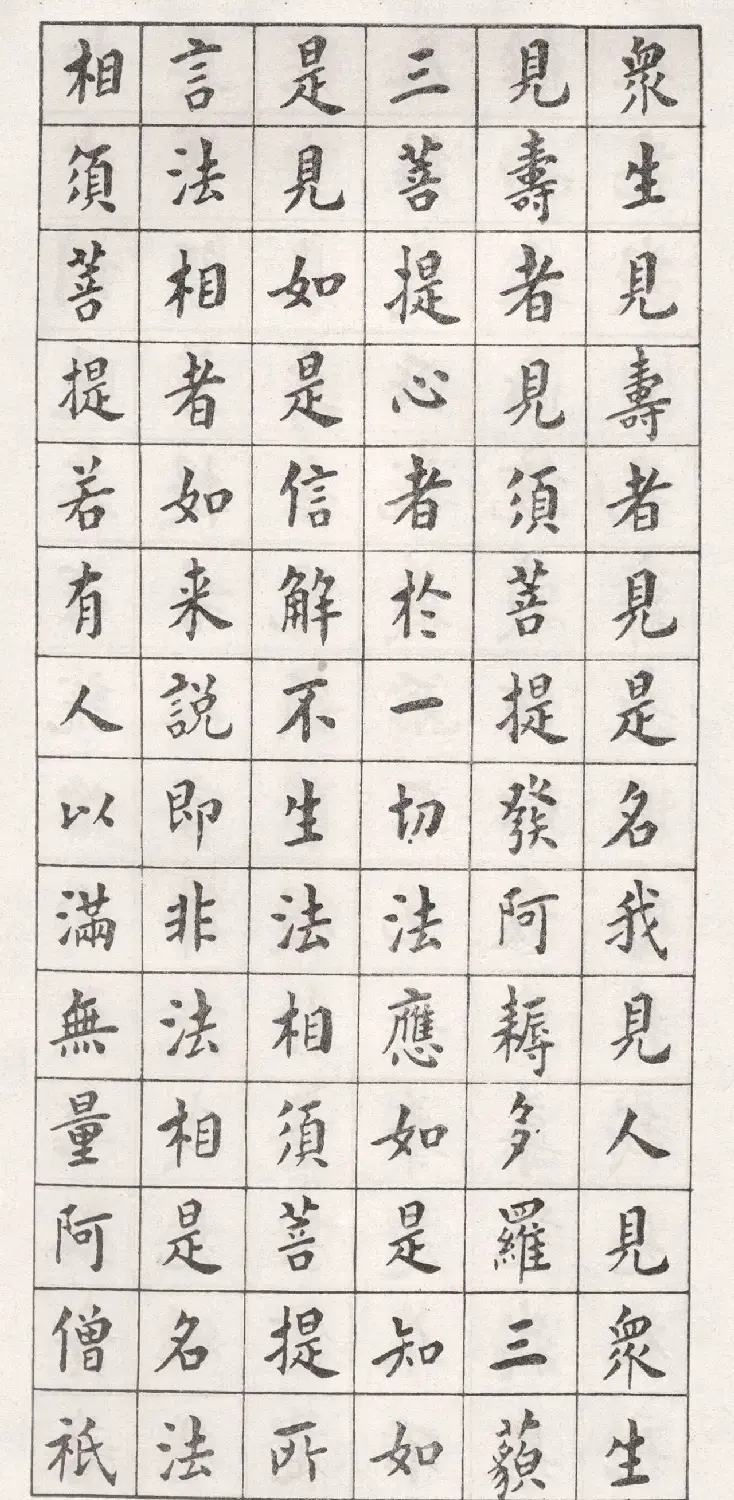 衆生見壽者見是名我見人見衆生
見壽者見須菩提發阿耨多羅三藐
三菩提心者於一切法應如是知如
是見如是信解不生法相須菩提所
言法相者如来説即非法相是名法
相須菩提若有人以滿無量阿僧祇